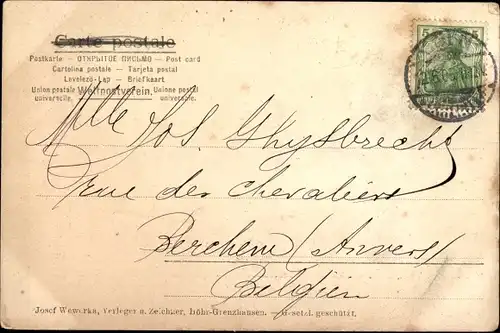 Carte postale
Postkarte — ОТКРЫТОЕ ПИСЬМО — Post card
Cartolina postale — Tarjeta postal
Levelező-Lap — Briefkaart
Union postale universelle. Weltpostverein. Unione postale universale.
5 5
Mlle Jos. Ghysbrecht
rue des Chevaliers
Berchem (Anvers)
Belgien
Josef Weworka, Verleger u. Zeichner, Höhr-Grenzhausen. — Gesetzl. geschützt.